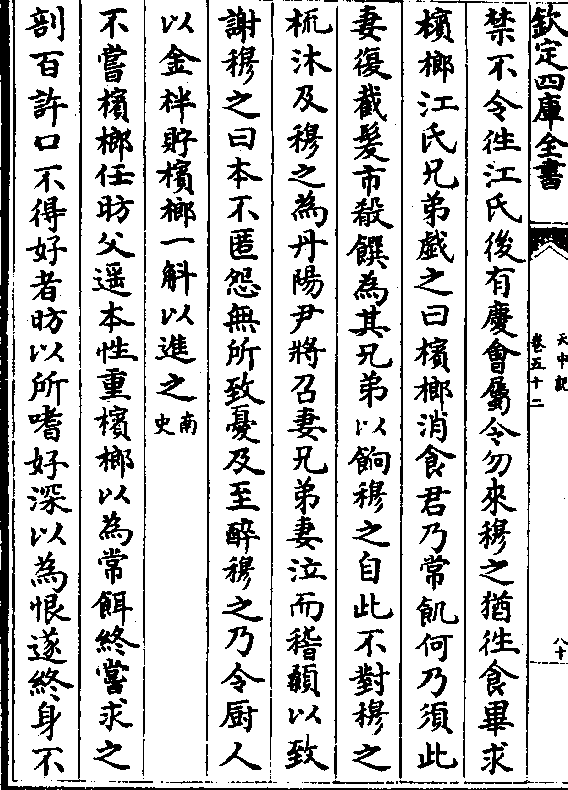 欽定四庫全書
天中記
卷五十二
八十
禁不令徃江氏後有慶㑹屬令勿來穆之猶徃食畢求
檳榔江氏兄弟戲之曰檳榔消食君乃常飢何乃須此
妻復截髪市殽饌為其兄弟以餉穆之自此不對穆之
梳沐及穆之為丹陽尹將召妻兄弟妻泣而稽顙以致
謝穆之曰本不匿怨無所致憂及至醉穆之乃令厨人
以金柈貯檳榔一斛以進之南史
不嘗檳榔任昉父遥本性重檳榔以為常餌終嘗求之
剖百許口不得好者昉以所嗜好深以為恨遂終身不